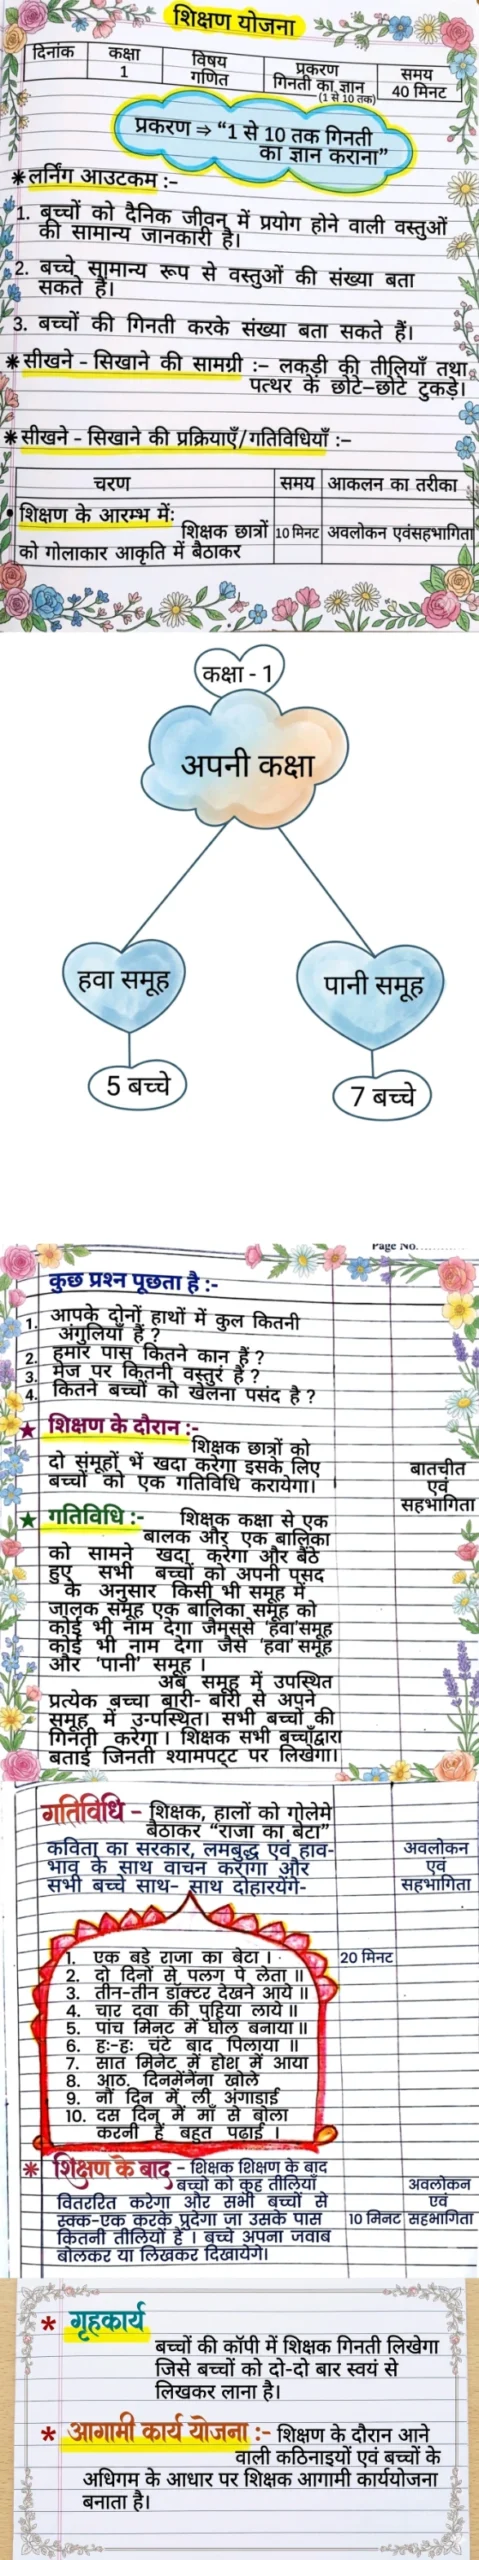 शिक्षण योजना
दिनांक
कक्षा
1
विषय
गणित
प्रकरण
गिनती का ज्ञान
(1 से 10 तक)
समय
40 मिनट
प्रकरण ⇒ “1 से 10 तक गिनती
का ज्ञान कराना”
* लर्निंग आउटकम :-
1. बच्चों को दैनिक जीवन में प्रयोग होने वाली वस्तुओं
की सामान्य जानकारी है।
2. बच्चे सामान्य रूप से वस्तुओं की संख्या बता
सकते हैं।
3. बच्चों की गिनती करके संख्या बता सकते हैं।
* सीखने - सिखाने की सामग्री :- लकड़ी की तीलियाँ तथा
पत्थर के छोटे-छोटे टुकड़े।
* सीखने - सिखाने की प्रक्रियाएँ/गतिविधियाँ :-
चरण समय आकलन का तरीका
• शिक्षण के आरम्भ में:
शिक्षक छात्रों 10 मिनट अवलोकन एवंसहभागिता
को गोलाकार आकृति में बैठाकर
कक्षा - 1
अपनी कक्षा
हवा समूह
पानी समूह
5 बच्चे
7 बच्चे
Page No. ............
कुछ प्रश्न पूछता है :-
1. आपके दोनों हाथों में कुल कितनी
अंगुलियाँ हैं ?
2. हमारे पास कितने कान हैं ?
3. मेज पर कितनी वस्तुएं हैं ?
4. कितने बच्चों को खेलना पसंद है ?
★ शिक्षण के दौरान :-
शिक्षक छात्रों को
दो समूहों में खदा करेगा इसके लिए
बच्चों को एक गतिविधि करायेगा।
बातचीत
एवं
सहभागिता
★ गतिविधि :- शिक्षक कक्षा से एक
बालक और एक बालिका
को सामने खदा करेगा और बैठे
हुए सभी बच्चों को अपनी पसद
के अनुसार किसी भी समूह में
जालक समूह एक बालिका समूह को
कोई भी नाम देगा जैमससे ‘हवा’समूह
कोई भी नाम देगा जैसे ‘हवा’ समूह
और ‘पानी’ समूह ।
अब समूह में उपस्थित
प्रत्येक बच्चा बारी- बारी से अपने
समूह में उन्पस्थित। सभी बच्चों की
गिनती करेगा । शिक्षक सभी बच्चोंद्वारा
बताई जिनती श्यामपट्ट पर लिखेगा।
गतिविधि - शिक्षक, हालों को गोलेमे
बैठाकर “राजा का बेटा”
कविता का सरकार, लमबुद्ध एवं हाव-
भाव के साथ वाचन करेगा और
सभी बच्चे साथ- साथ दोहारयेंगे-
अवलोकन
एवं
सहभागिता
20 मिनट
1. एक बड़े राजा का बेटा ।
2. दो दिनों से पलग पे लेता ॥
3. तीन-तीन डॉक्टर देखने आये ॥
4. चार दवा की पुहिया लाये ॥
5. पांच मिनट में घोल बनाया ॥
6. हः-हः चंटे बाद पिलाया ॥
7. सात मिनेट में होश में आया
8. आठ. दिनमेंनैना खोले
9. नौं दिन में ली अंगाडाई
10. दस दिन में माँ से बोला
करनी हैं बहुत पढ़ाई ।
* शिक्षण के बाद - शिक्षक शिक्षण के बाद
बच्चो को कुह तीलियाँ
वितररित करेगा और सभी बच्चों से
स्वक-एक करके प्रुदेगा जा उसके पास
कितनी तीलियों हैं । बच्चे अपना जवाब
बोलकर या लिखकर दिखायेगे।
10 मिनट
अवलोकन
एवं
सहभागिता
* गृहकार्य
बच्चों की कॉपी में शिक्षक गिनती लिखेगा
जिसे बच्चों को दो-दो बार स्वयं से
लिखकर लाना है।
* आगामी कार्य योजना :- शिक्षण के दौरान आने
वाली कठिनाइयों एवं बच्चों के
अधिगम के आधार पर शिक्षक आगामी कार्ययोजना
बनाता है।